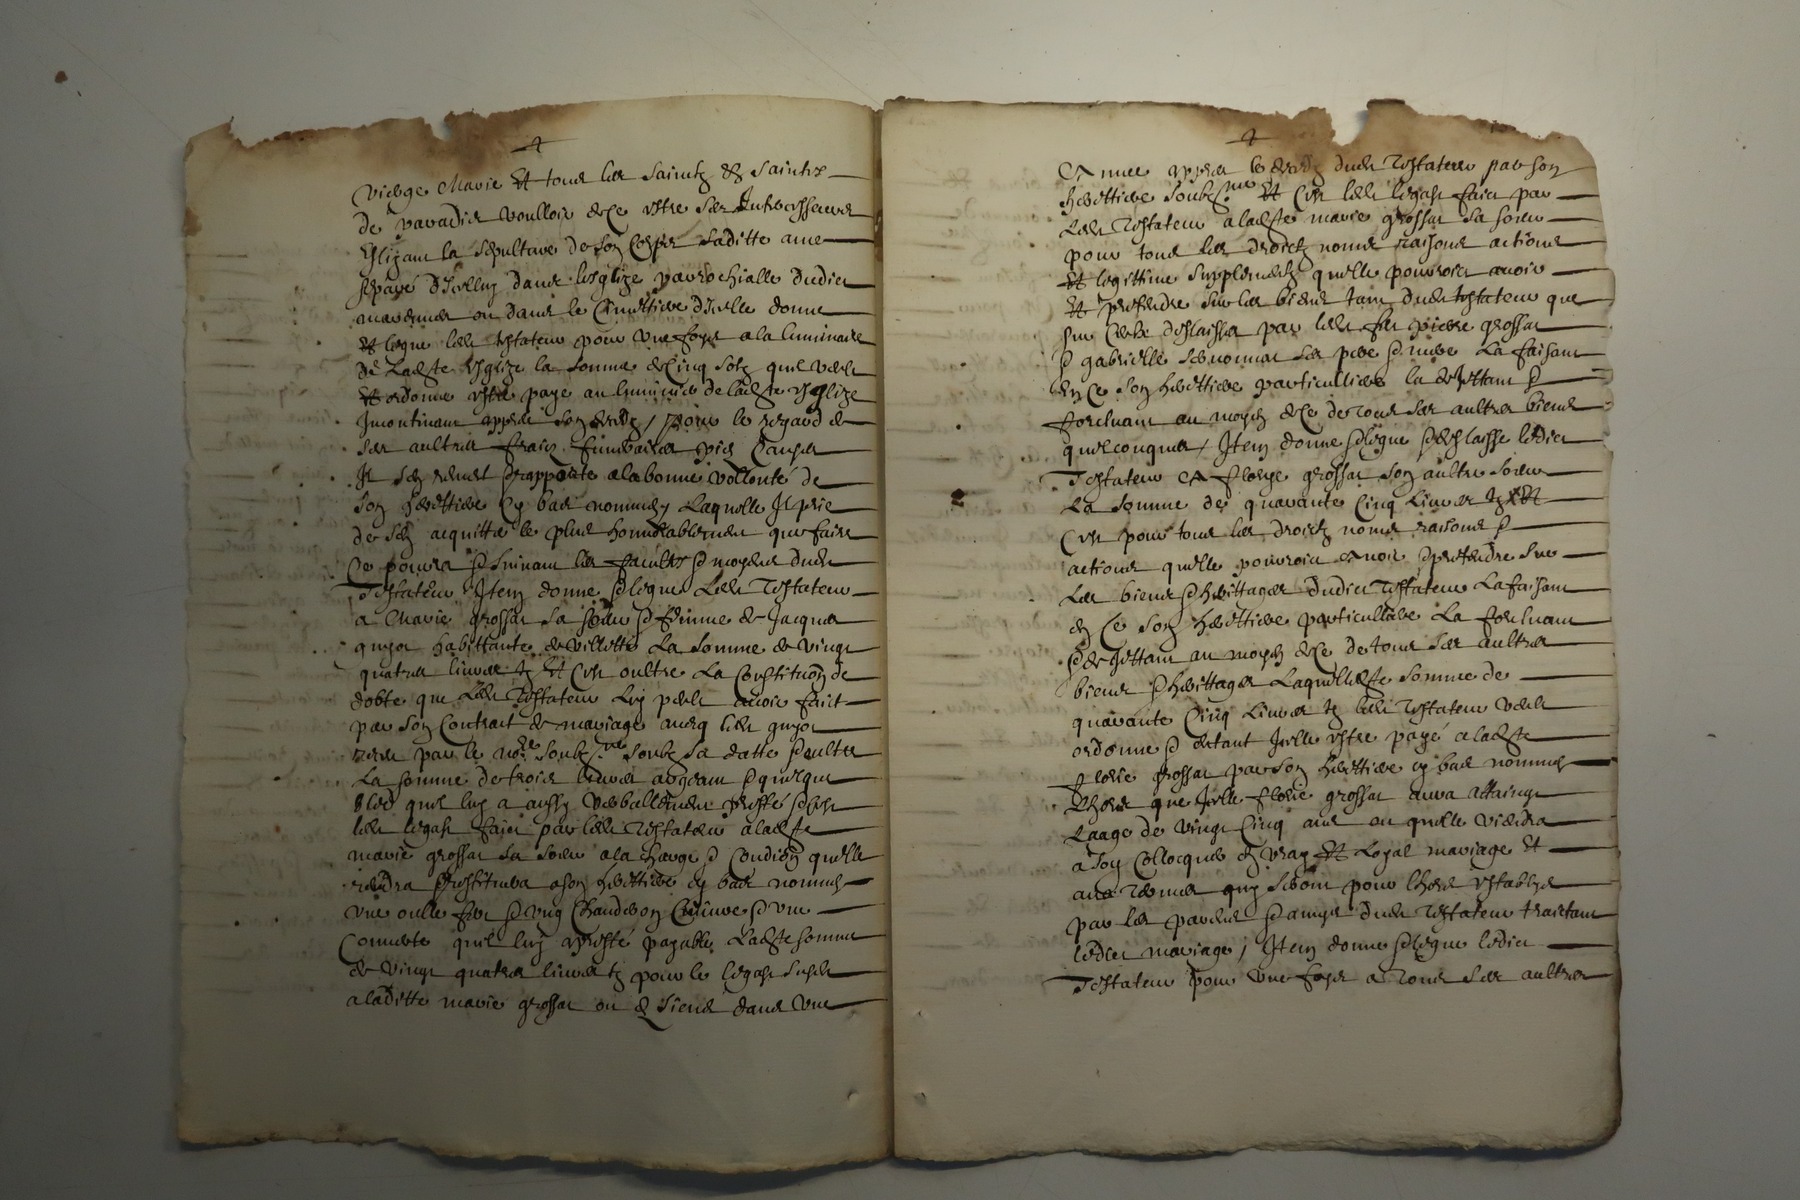 Vierge Marie Et tous les sainctz & sainctes
de paradis voulloir & ce estre ses Intercesseurs
Eslizant la sepulture de son Corps saditte ame
separé dIcelluy dans lesglize parrochialle dudict
ou dans le Cimettiere dIcelle donne
Et legue ledit testateur pour une foys a la luminaire
de ladite esglize la somme de Cinq solz quil veult
Et ordonne estre payé au luminier de ladite esglize
Incontinant appres son decedz / pour le regard de
ses aultres fraiz funeraires pies Causes
Il sen remet & rapporte a la bonne vollonté de
son herettiere Cy bas nommée Laquelle Il prie
de sen acquitter le plus honnorablement que faire
Ce pourra & suivant les facultes & moyens dudit
Testateur Item donne & legue Ledit Testateur
a Marie grossat sa soeur & femme de Jacques
guyot habittante de villette La somme de vingt
quatres livres tz Et Cest oultre La Constitution de
dobte que Ledit Testateur Luy avoir faict
par son Contract de mariage avecq ledit guyot
receu par le nore soubzne soubz sa datte & oultre
La somme de trois livres argent & quelque
bled quil luy a aussy verballement presté & Cest
ledit legast faict par ledit Testateur a ladite
marie grossat sa soeur a la charge & Condition quelle
rendra & restituera a son herettiere cy bas nommée
une oulle fer & ung Chauderon Cuivre & une
Couverte quil luy a presté payable Ladite somme
de vingt quatres livres tz pour le legast susdit
a laditte marie grossat ou es siens dans une
Annee appres le decedz dudit Testateur par son
herettiere soubzne Et Cest ledit legast faict par
Ledit Testateur a ladite marie grossat sa soeur
pour tous les droictz noms raisons actions
Et legittime supplement quelle pourroict avoir
Et prethendre sur les biens tant dudit testateur que
sur Ceulx deslaisses par ledit feu pierre grossat
& gabrielle ses pere & mere La faisant
en Ce son herettiere particulliere la dejettant &
forcluant au moyen de ce de tous ses aultres biens
quelconques / Item donne & legue & deslaisse ledict
Testateur A florye grossat son aultre soeur
La somme de quarante Cinq Livres tz Et
Cest pour tous les droictz noms raisons &
actions quelle pourroict Avoir & prethendre sur
Les biens & herittages dudict Testateur La faisant
en Ce son herettiere particulliere La forcluant
& dejettant au moyen de ce de tous ses aultres
biens & herittages Laquelle dite somme de
quarante Cinq Livres tz ledit Testateur veult
ordonne & entant Icelle estre payé a ladite
florie grossat par son herettiere cy bas nommée
Lhors que Icelle florie grossat aura attainct
Laage de vingt Cinq ans ou quelle viendra
a soy Collocquer en vray Et Loyal mariage Et
aux termes quy seront pour lhors establys
par les parens & amys dudit Testateur traictant
ledict mariage / Item donne & legue ledict
Testateur pour une foys a tous ses aultres